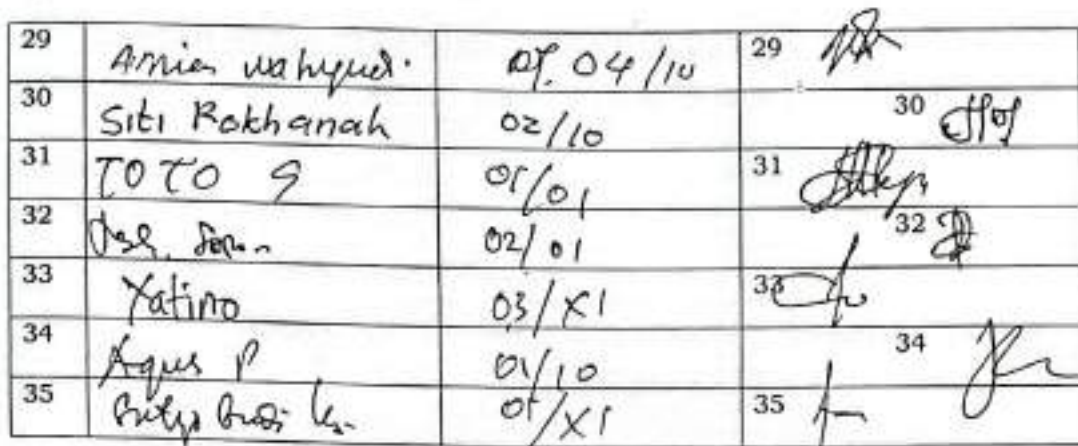 29 Amien wahyudi. 04/10 29
30 Siti Rokhanah 02/10 30
31 TOTO S 01/01 31
32 02/01 32
33 Yatino 03/XI 33
34 Agus P 01/10 34
35 Budi 01/XI 35